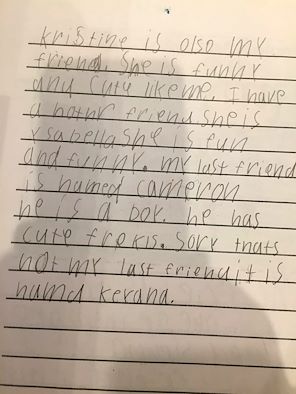 kristine is olso my
friend. She is funny
and cute like me. I have
a nothr friend she is
ysabella she is fun
and funny. my last friend
is named cameron
he is a boy. he has
cute frokls. Sory thats
not my last friend it is
namd keyana.